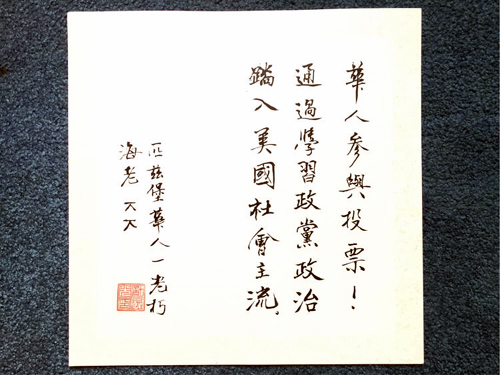 華人參與投票！
通過學習政黨政治
踏入美國社會主流.
匹兹堡華人一老朽
海老